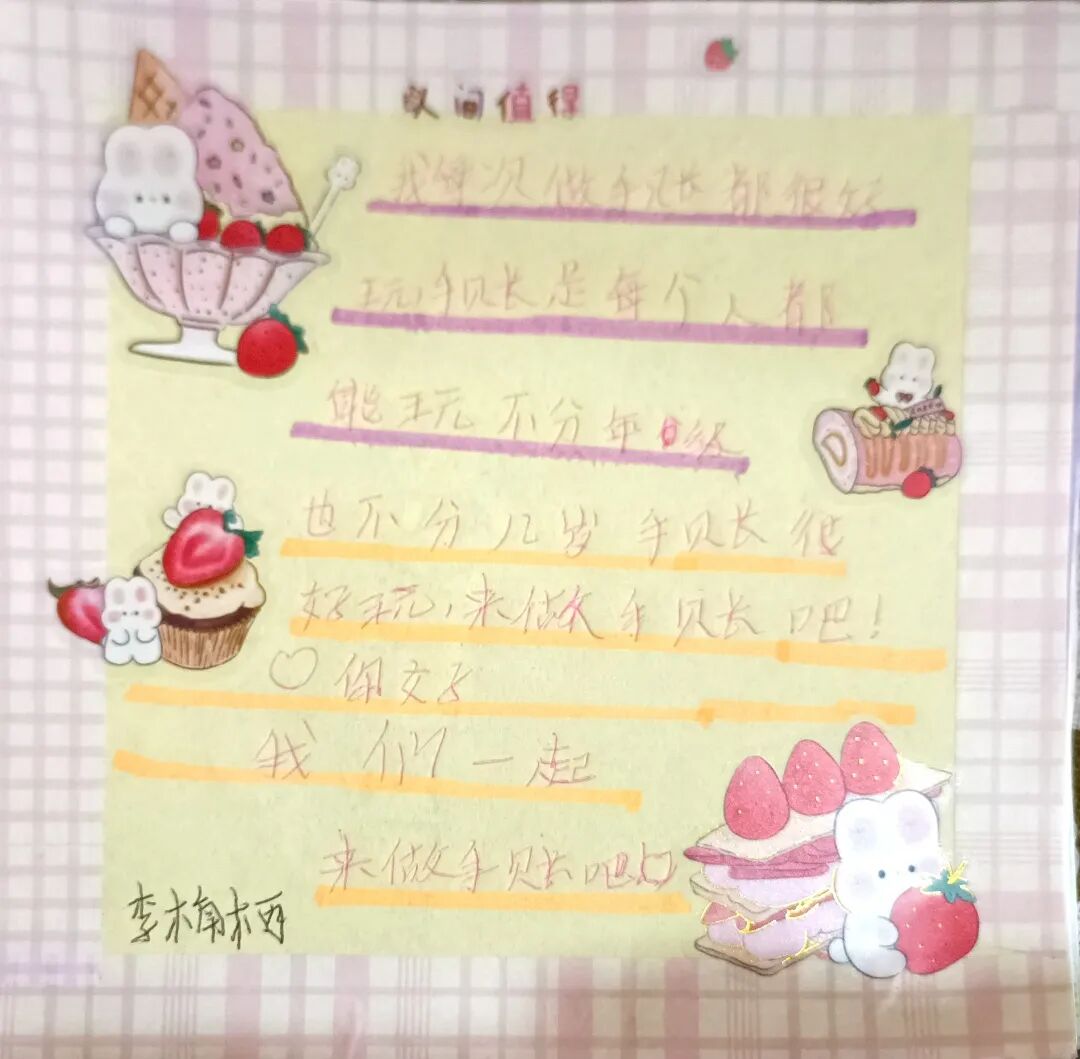 人间值得
我每次做手账都很好
玩,手账是每个人都
能玩不分年级
也不分几岁手账很
好玩,来做手账吧!
我们一起
来做手账吧
李桷栖